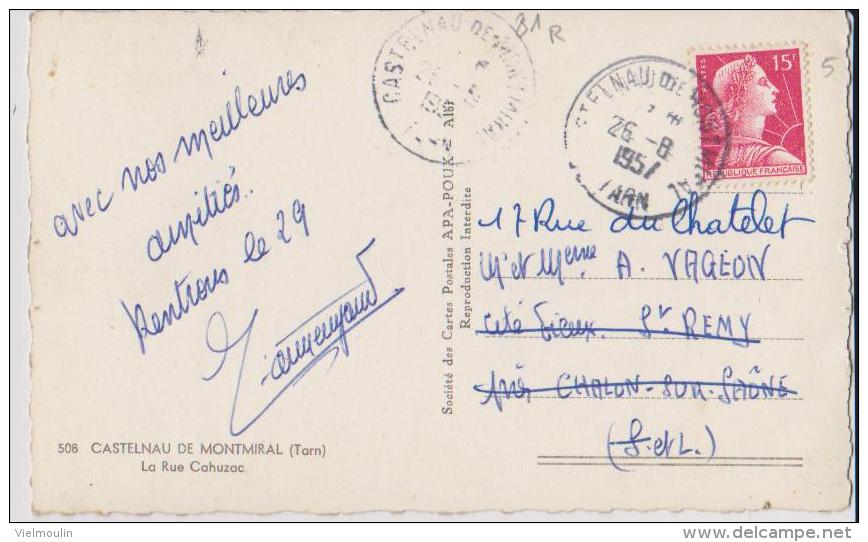 81 R
5
CASTELNAU DE MONTMIRAL
CASTELNAU DE MONTMIRAL
26 -8
1957
TARN
15F
POSTES
REPUBLIQUE FRANÇAISE
avec nos meilleures
amitiés.
Rentrons le 29
Société des Cartes Postales APA-POUX - Albi
Reproduction Interdite
17 Rue du Chatelet
Mr et Mme A. VAGEON
Cité St REMY
près CHALON-SUR-SAÔNE
(S.et L.)
508 CASTELNAU DE MONTMIRAL (Tarn)
La Rue Cahuzac
Vielmoulin
www.delcampe.net